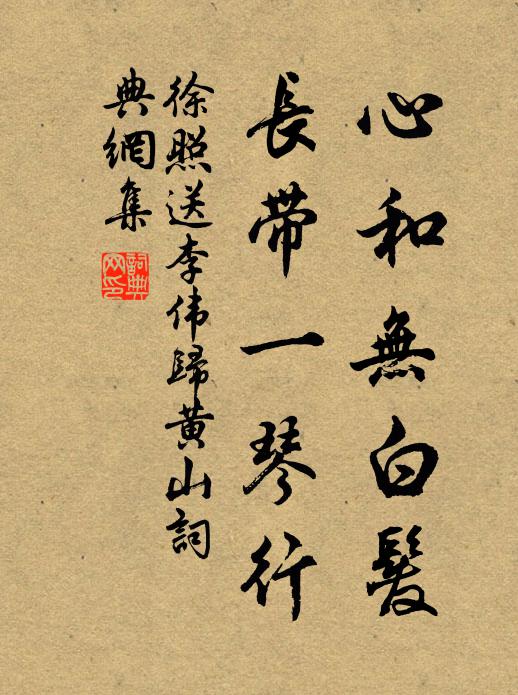 心和無白髮
長帶一琴行
徐照送李伟歸黄山詞
典網集
詞典
网印